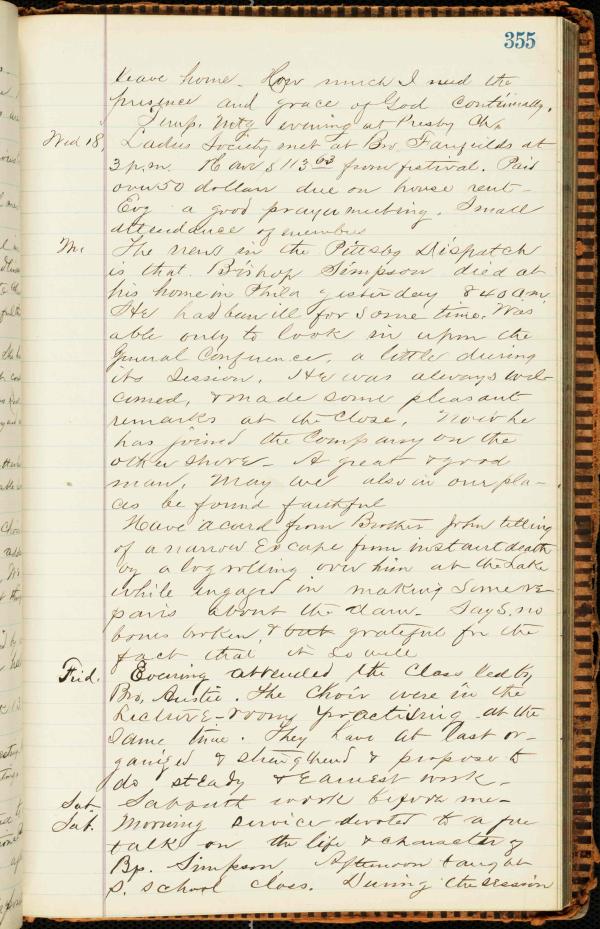 355
leave home. How much I need the
presence and grace of God continually.
Temp. Mtg evening at Presby Ch.
Wed 18, Ladies Society met at Bro. Fairfields at
3 p.m. Have $113 63 from festival. Paid
over 50 dollars due on house rent -
Evg a good prayer meeting. Small
attendance of members
The news in the Pittsbg Dispatch
is that Bishop Simpson died at
his home in Phila yesterday 8 40 a.m.
He had been ill for some time. Was
able only to look in upon the
General Conference, a little during
its Session. He was always wel-
comed, & made some pleasant
remarks at the close. Now he
has joined the Company on the
other shore - A great & good
man, May we also in our pla-
ces be found faithful
Have a card from Brother John telling
of a narrow Escape from instant death
by a log rolling over him at the Lake
while engaged in making some re-
pairs about the dam. Says no
bones broken, & but grateful for the
fact that it so well
Frid. Evening attended the Class led by
Bro. Austie. The Choir were in the
Lecture-room practising at the
same time. They have at last or-
ganized & strengthend & propose to
do steady & Earnest work -
Sat - Sabbath work before me -
Sab. Morning service devoted to a
talk on the life & character of
Bp. Simpson, Afternoon taught
S. School class. During the session